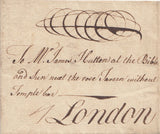 To Mr James Hutton at the Bible
and Sun near the rose Tavern without
Temple bar
London